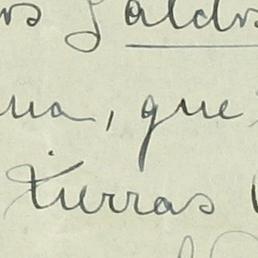 os Galdos
ua, que
Tierras